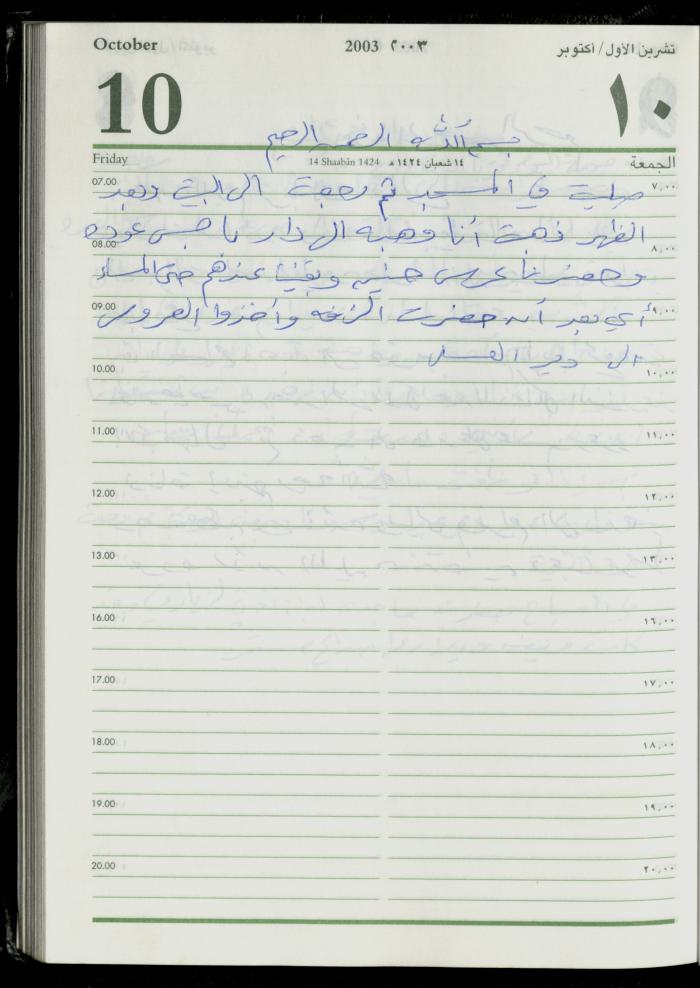 October 2003 ٢٠٠٣ تشرين الأول/أكتوبر
10 ١٠
بسم الله الرحمن الرحيم
Friday 14 Shaabân 1424 ١٤ شعبان ١٤٢٤ هـ الجمعة
07.00 ٧,٠٠
صليت في المسجد ثم رجعت الى البيت وبعد
الظهر ذهبت أنا وهبه الى دار ياجس عوده
08.00 ٨,٠٠
وحضرنا عرس حنين وبقينا عندهم حتى المساء
09.00 ٩,٠٠
أي بعد أن حضرت الزفه وأخذوا العروس
الى دير العسل
10.00 ١٠,٠٠
11.00 ١١,٠٠
12.00 ١٢,٠٠
13.00 ١٣,٠٠
16.00 ١٦,٠٠
17.00 ١٧,٠٠
18.00 ١٨,٠٠
19.00 ١٩,٠٠
20.00 ٢٠,٠٠